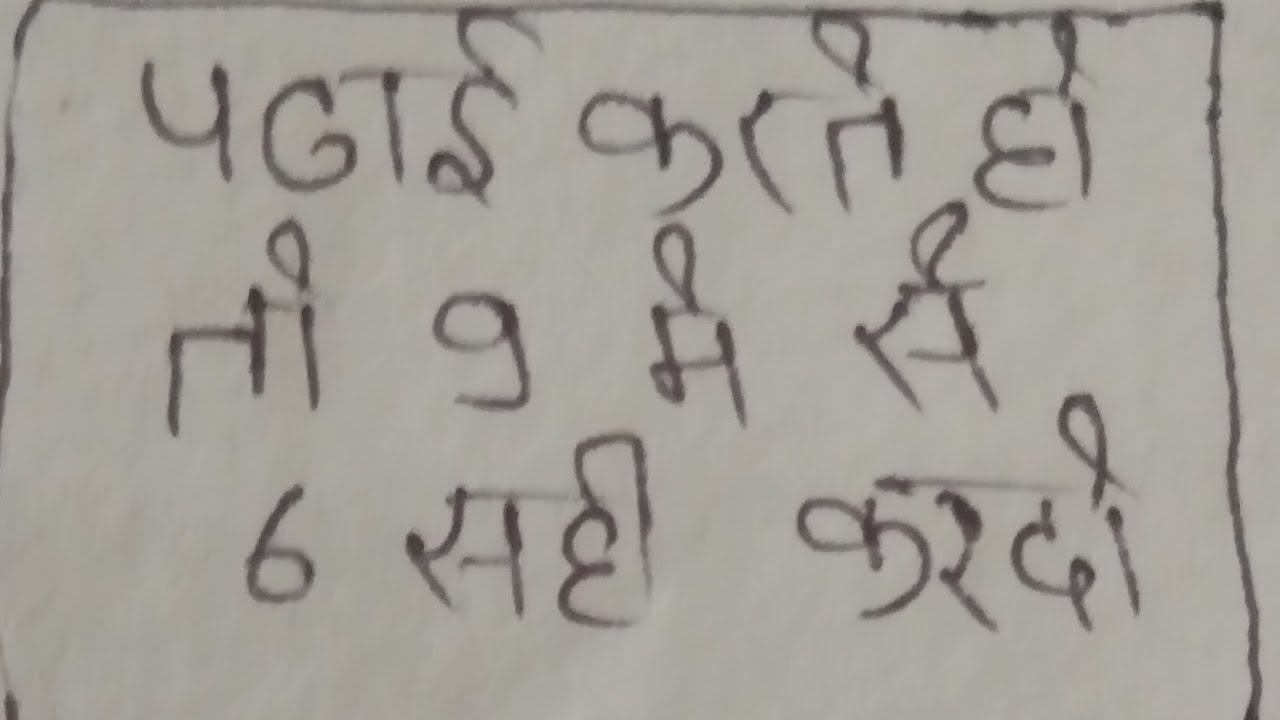 पढाई करते हो
तो 9 मे से
6 सही करदो